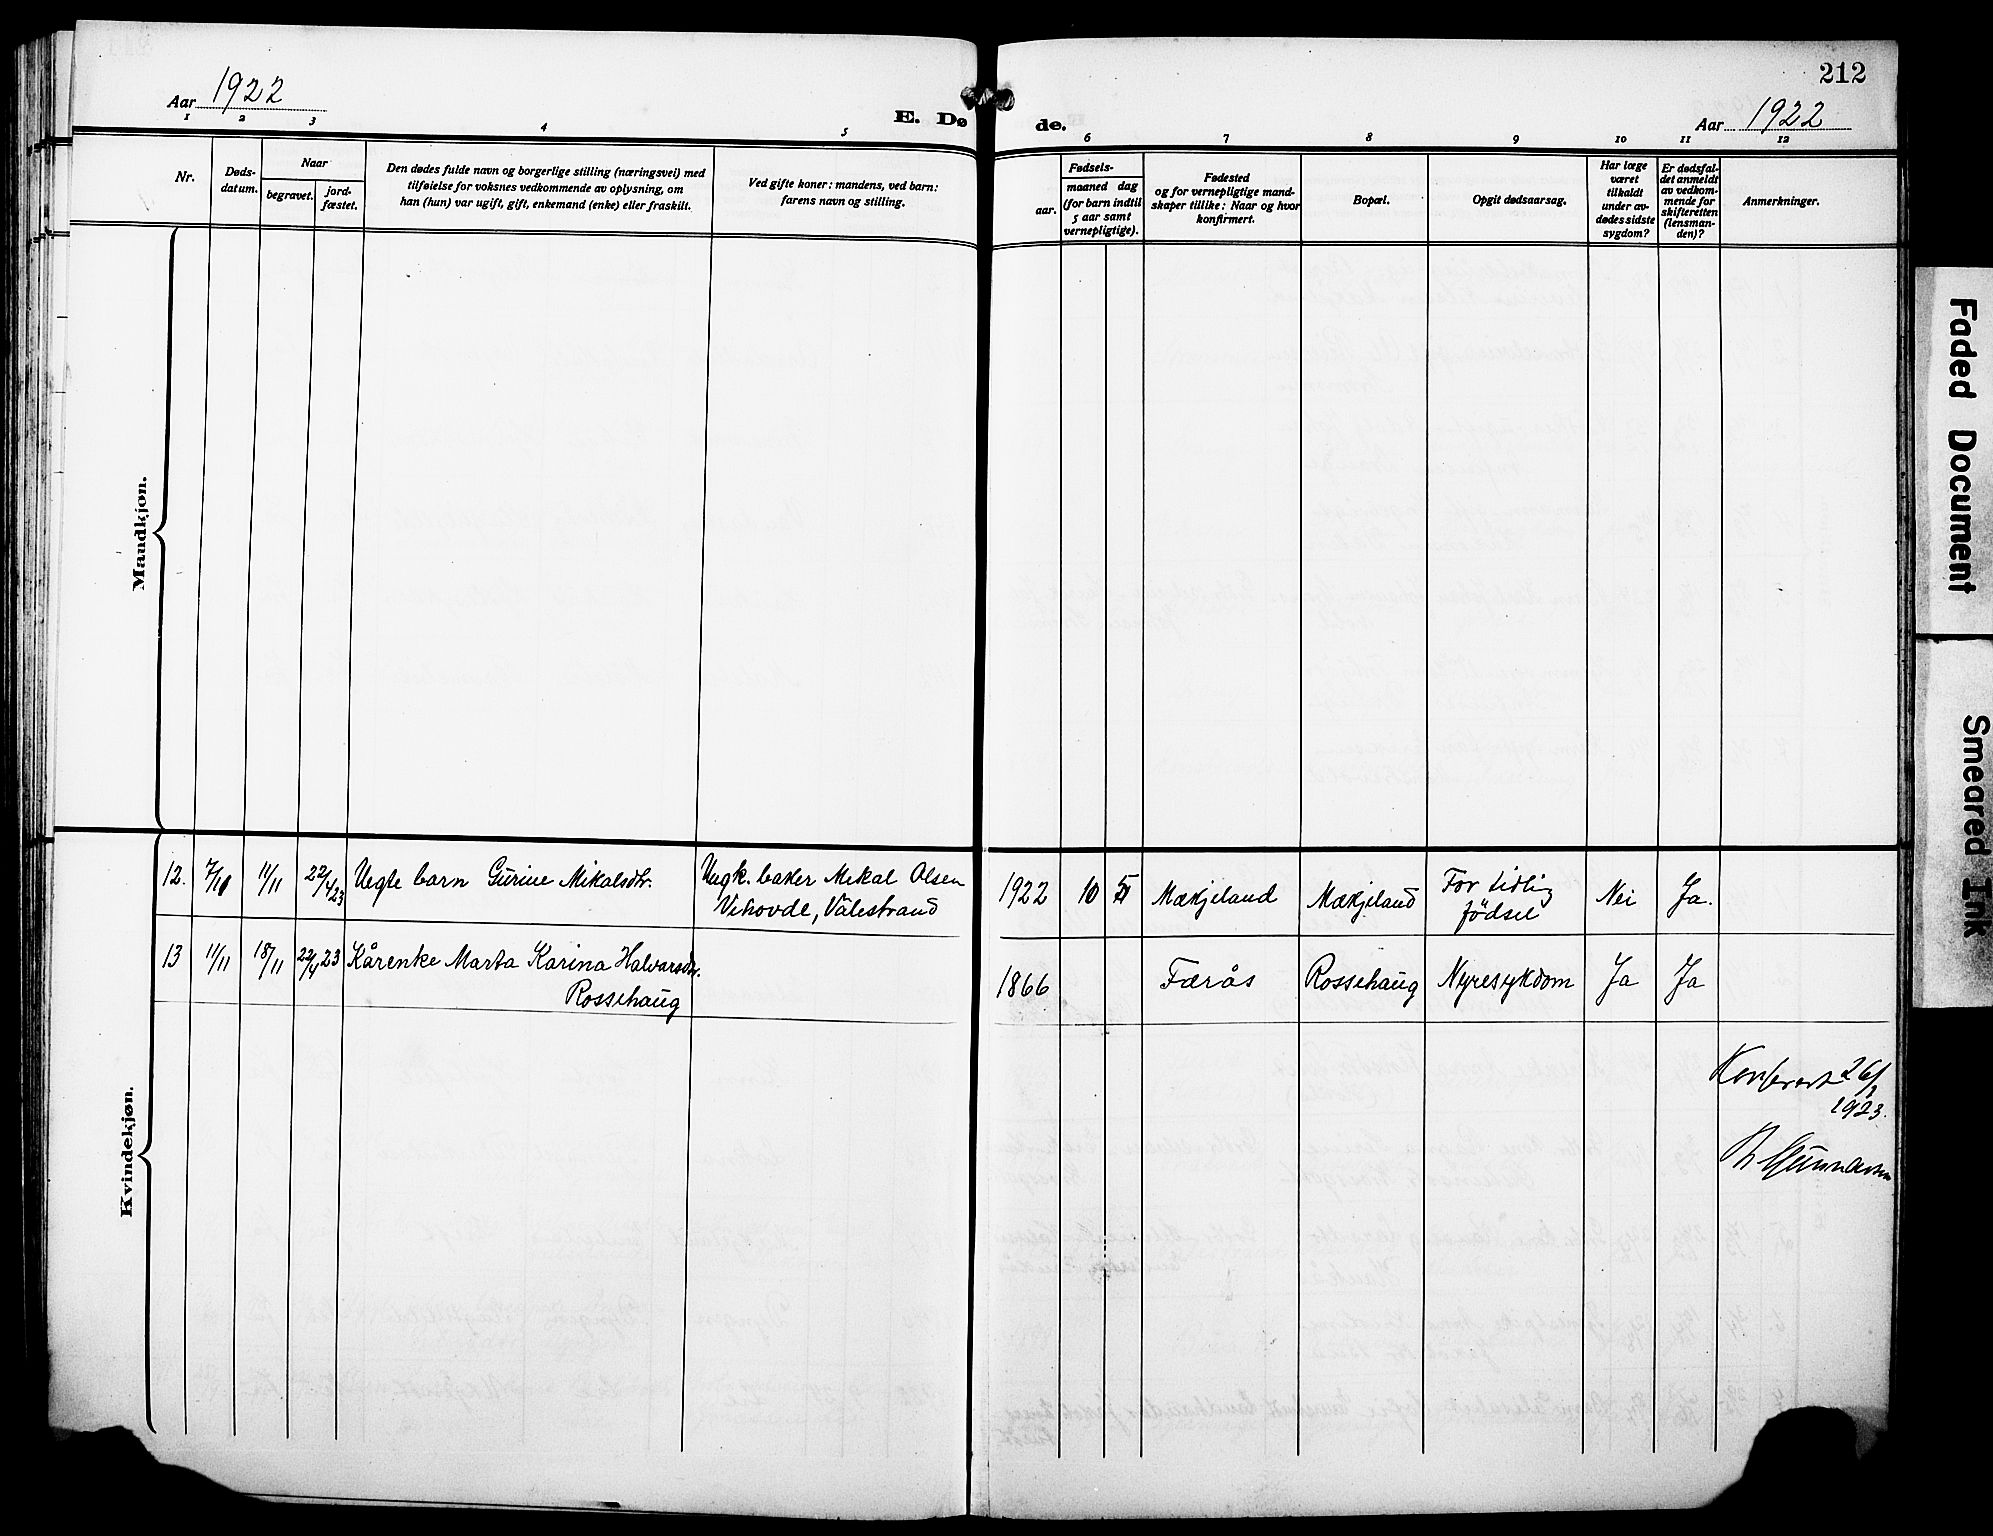 Aar 1922
E. Dø
1 2 3 4 5
Nr.
Døds-
datum.
Naar
begravet.
jord-
fæstet.
Den dødes fulde navn og borgerlige stilling (næringsvei) med
tilføielse for voksnes vedkommende av oplysning, om
han (hun) var ugift, gift, enkemand (enke) eller fraskilt.
Ved gifte koner: mandens, ved barn:
farens navn og stilling.
Mandkjøn.
12. 7/10 11/11 22/4 23 Uegte barn Gurine Mikalsdtr. Ungk. baker Mikal Olsen
Vihovde, Vålestrand
13 11/11 18/11 22/4 23 Kårenke Marta Karina Halvarsdtr.
Rossehaug
Kvindekjøn.
212
de.
Aar 1922
6 7 8 9 10 11 12
aar.
Fødsels-
maaned dag
(for barn indtil
5 aar samt
vernepligtige).
Fødested
og for vernepligtige mand-
skaper tillike: Naar og hvor
konfirmert.
Bopæl.
Opgit dødsaarsag.
Har læge
været
tilkaldt
under av-
dødes sidste
sygdom?
Er dødsfal-
det anmeldt
av vedkom-
mende for
skifteretten
(lensman-
den)?
Anmerkninger.
1922 10 Mækjeland Mækjeland For tidlig Nei Ja.
fødsel
1866 Færås Rossehaug Nyresykdom Ja Ja
Konferert 26/1
1923.
Gunnarsen
Faded Document
Smeared Ink